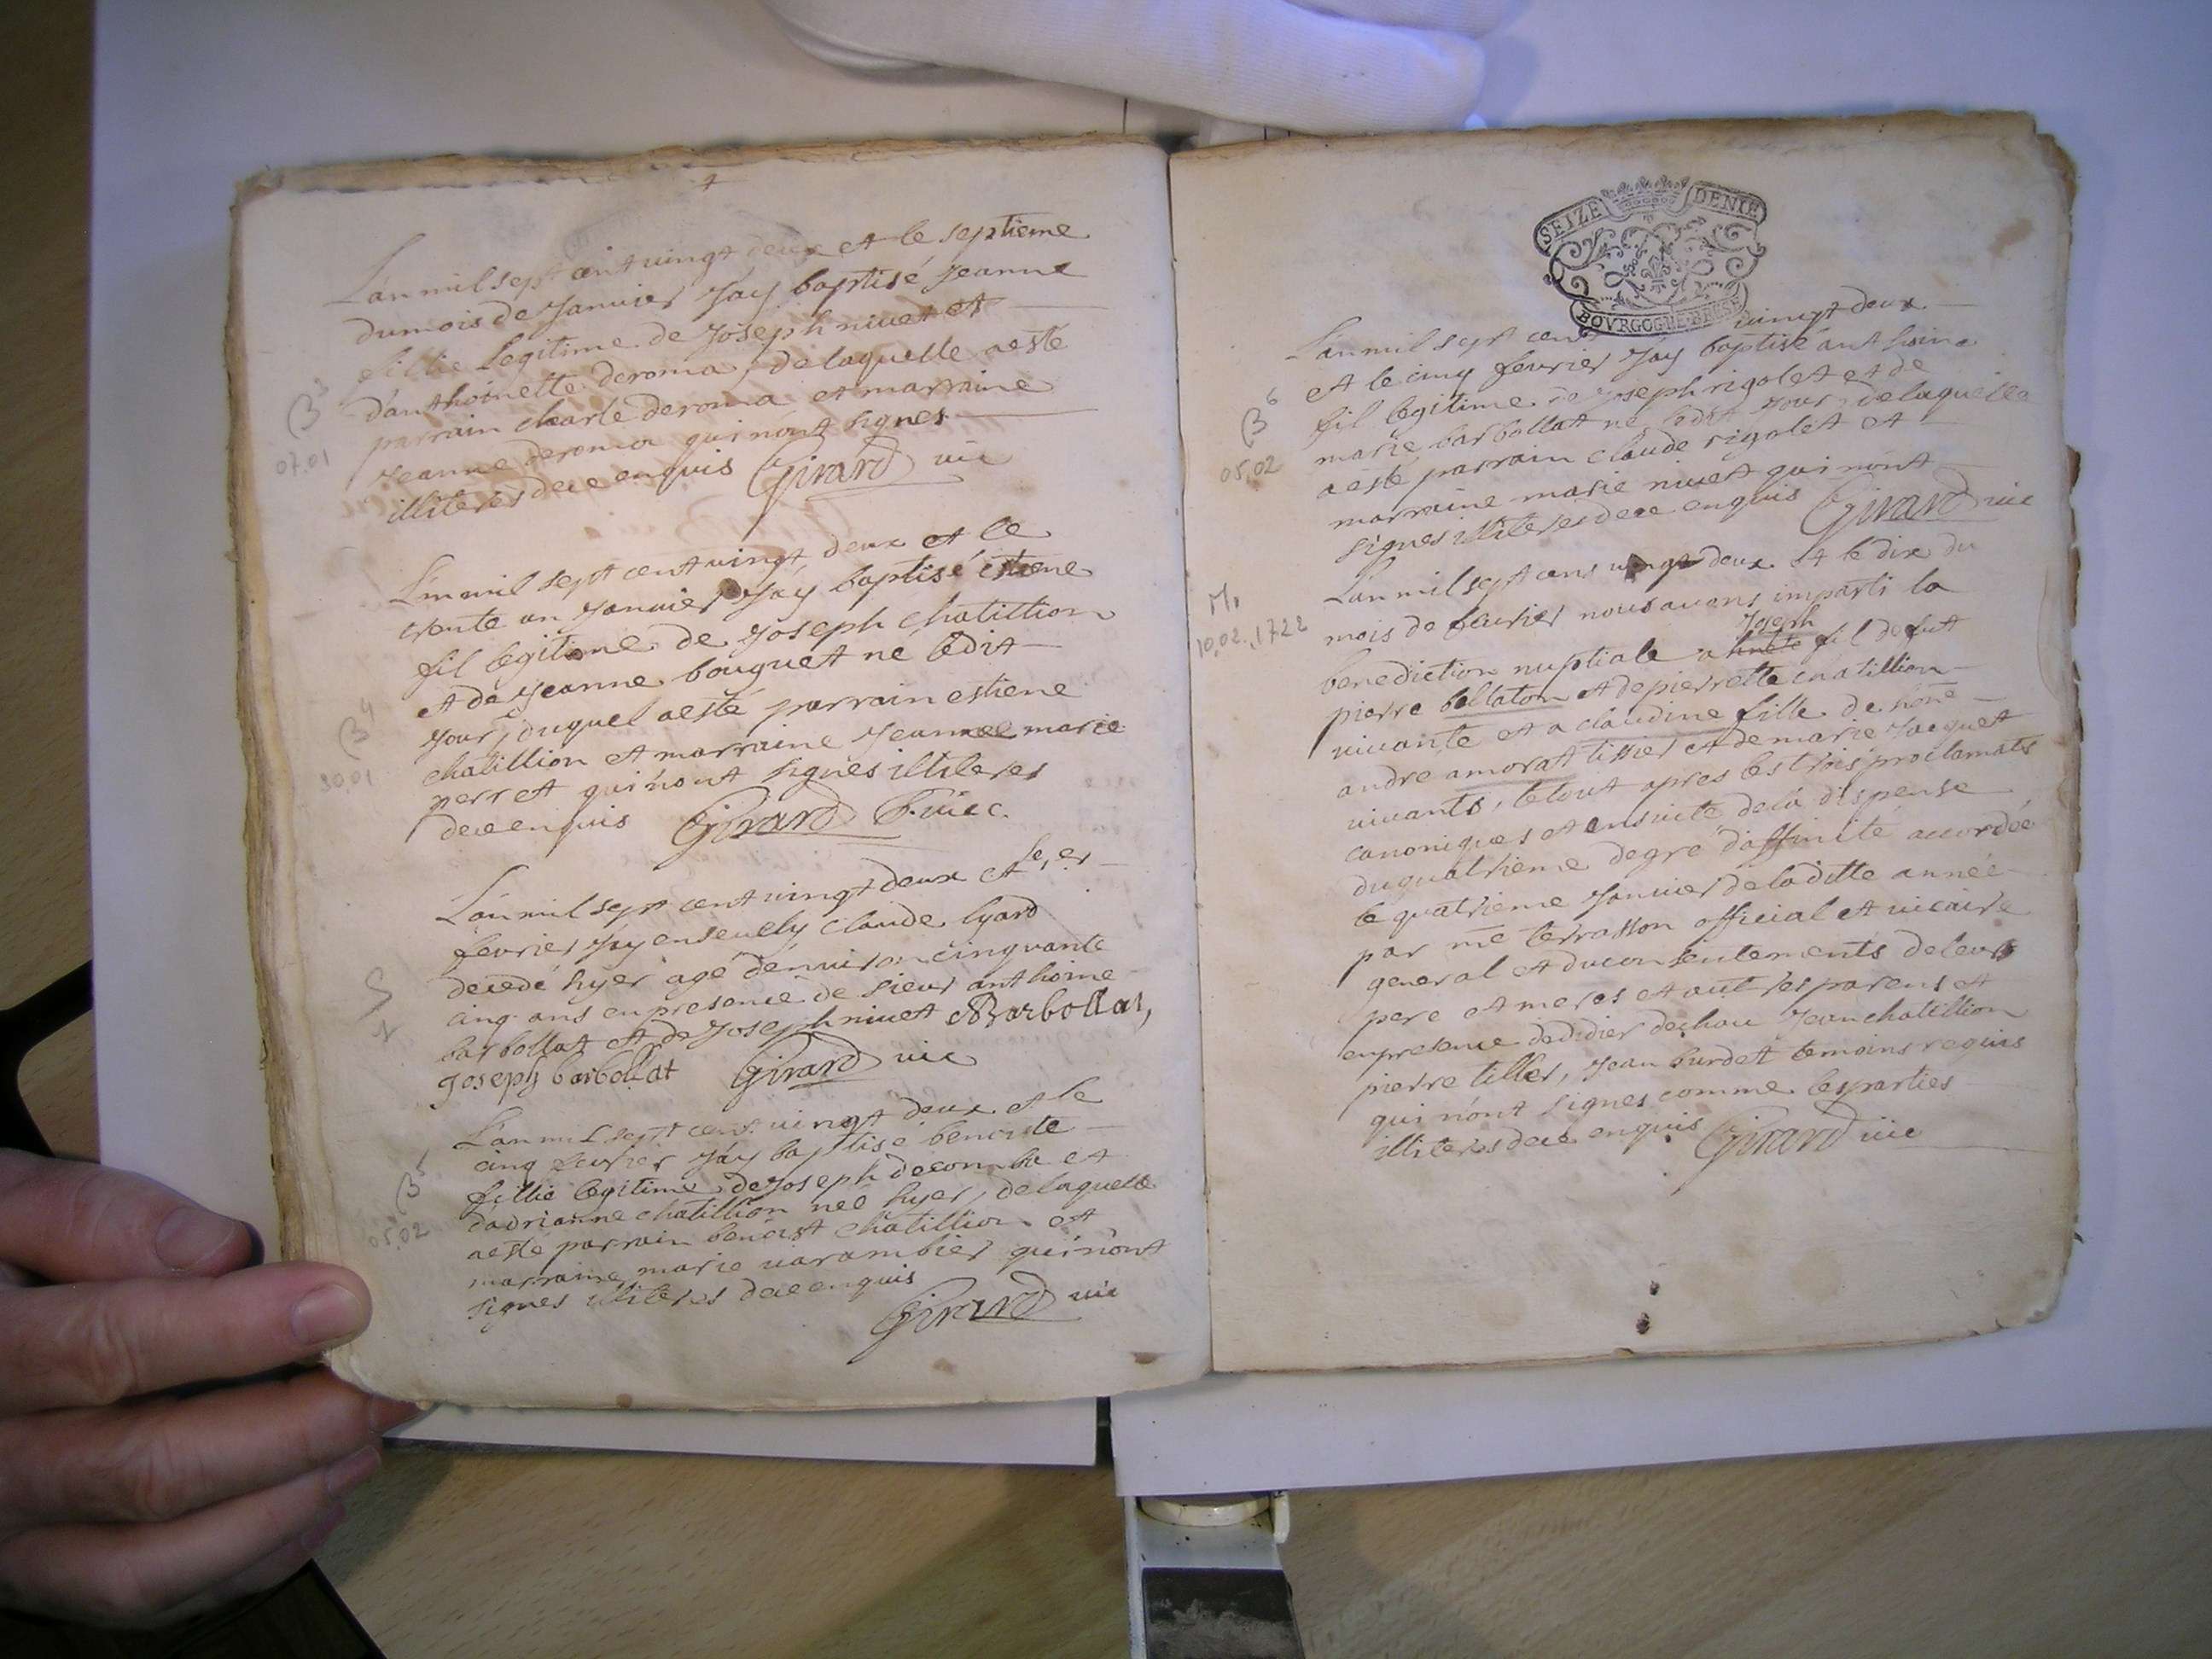 L'an mil sept cent vingt deux et le septieme
du mois de Janvier J'ay baptisé Jeanne
fillie legitime de Joseph nivet et
d'anthoinette deroma, de laquelle a esté
parrain charle deroma et marraine
Jeanne deroma qui n'ont signes
illiteres de ce enquis Girard vic
B 3
07.01
L'an mil sept cent vingt deux et le
trente un Janvier J'ay baptisé estiene
fil legitime de Joseph chatillion
et de Jeanne bouquet ne ledit
Jour, duquel a esté parrain estiene
chatillion et marraine Jeanne marie
perret qui n'ont signes illiteres
de ce enquis Girard vicc.
B 4
30.01
L'an mil sept cent vingt deux et le
fevrier J'ay ensevely claude lyard
decedé hyer agé d'envison cinquante
cinq ans en presence de sieur anthoine
barbollat et de Joseph nivet Barbollat,
Joseph barbollat Girard vic
S
1
L'an mil sept cens vingt deux et le
cinq fevrier J'ay baptisé benoiste
fillie legitime de Joseph decomba et
d'adrianne chatillion neé hyer, de laquelle
a esté parrain benoist chatillion et
marraine marie varambier qui n'ont
signes illiteres de ce enquis
Girard vic
B 5
05.02
SEIZE DENIE
BOVRGOGNE BRESSE
L'an mil sept cens vingt deux
et le cinq fevrier J'ay baptisé anthoine
fil legitime de Joseph rigolet et de
marie barbollat ne ledit Jour, de laquelle
a esté parrain claude rigolet et
marraine marie nivet qui n'ont
signes illiteres de ce enquis Girard vic
B 6
05.02
L'an mil sept cens vingt deux et le dix du
mois de fevrier nous avons imparti la
Joseph
benediction nuptiale a fil de fut
pierre bollaton et de pierrette chatillion
vivante et a claudine fille de hone
andre amorat tissier et de marie Jacquet
vivants, le tout apres les trois proclamats
canoniques et ensuite de la dispense
du quatrieme degré d'affinité accordée
le quatrieme Janvier de la ditte année
par me terrasson official et vicaire
general et du consentements de leurs
pere et meres et autres parens et
en presence de didier dechau Jean chatillion
pierre tillier, Jean burdet temoins requis
qui n'ont signes comme les parties
illiteres de ce enquis Girard vic
M.
10.02.1722